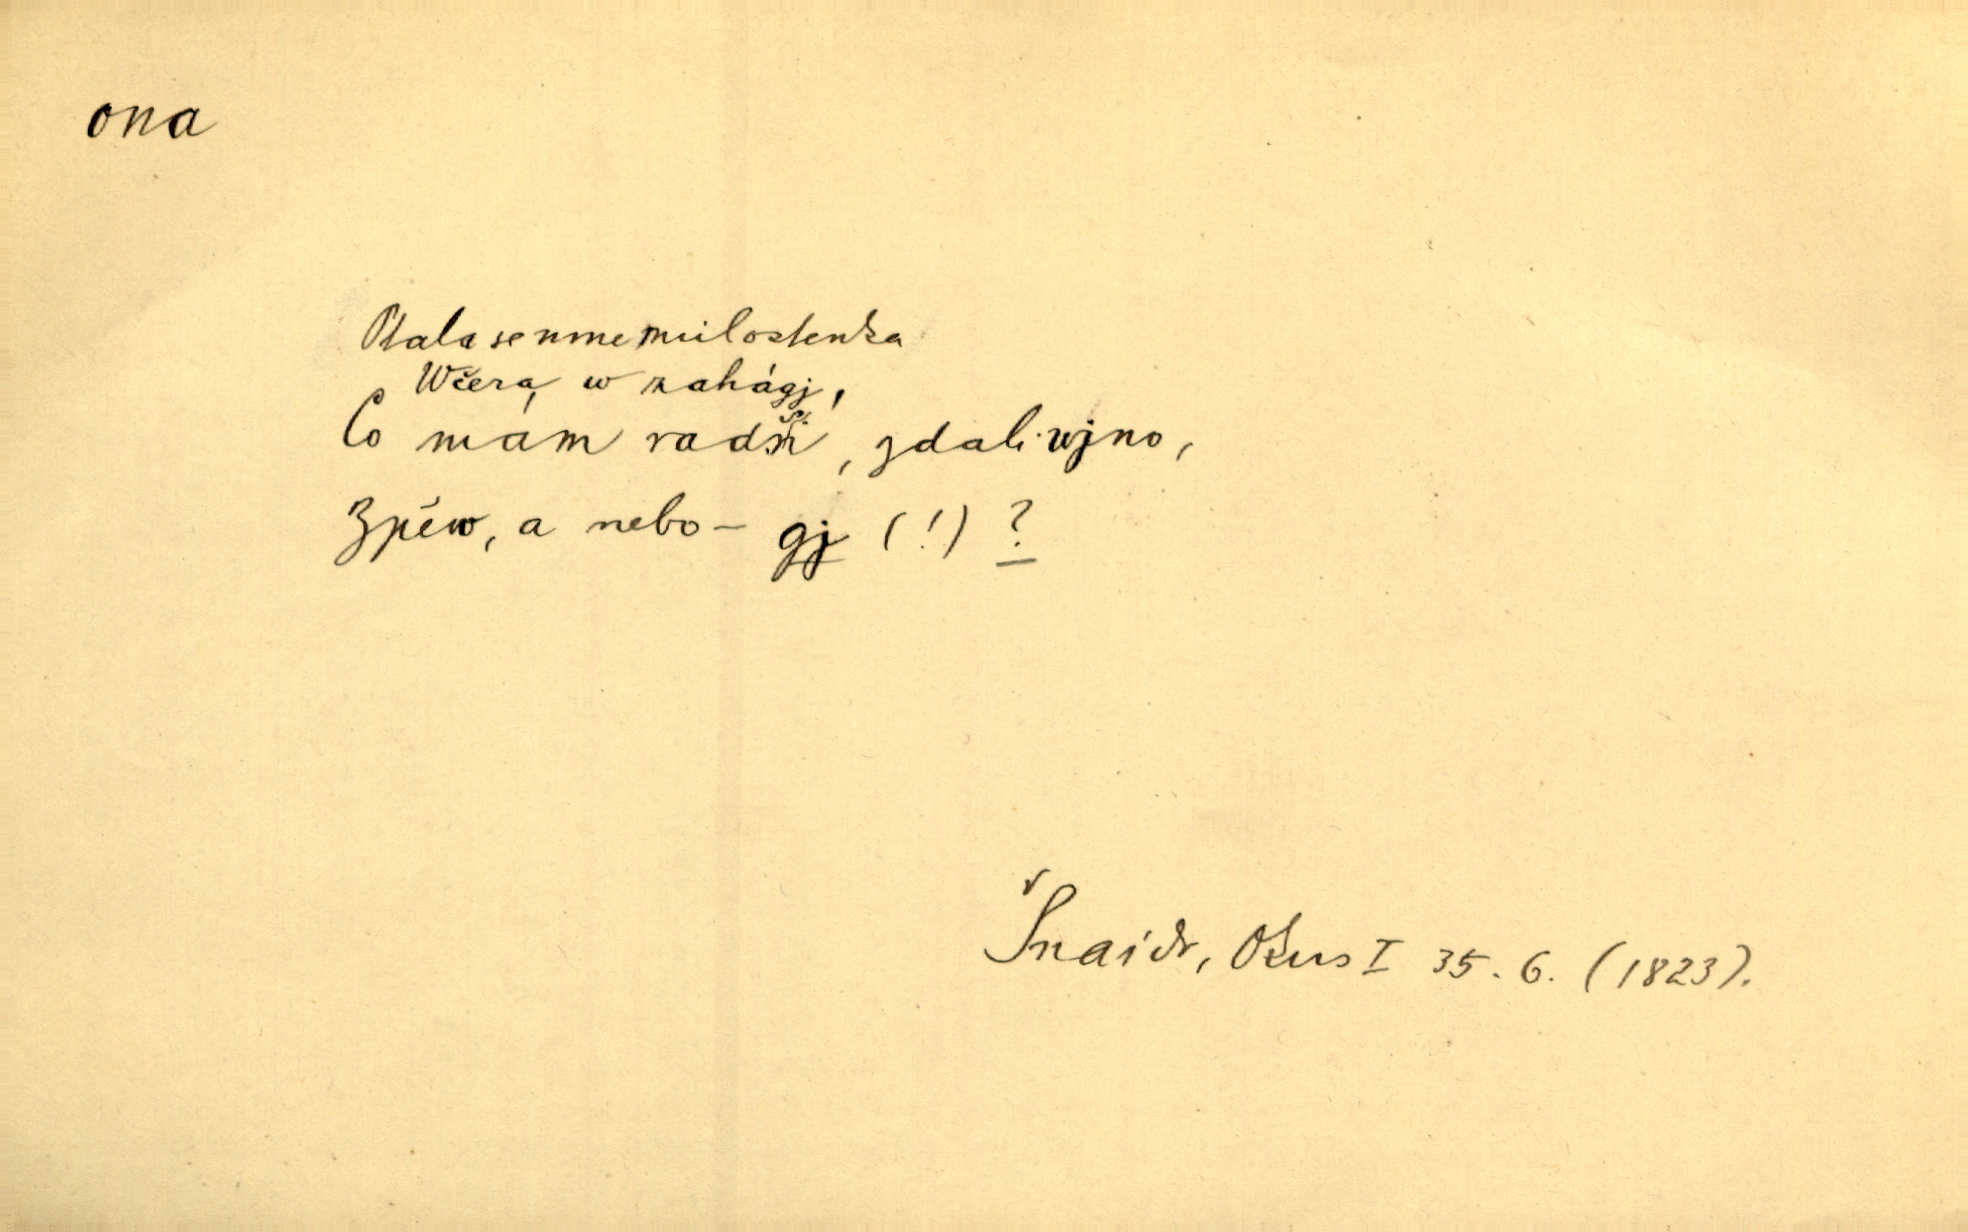 ona
Ptala se mne milostenka
Wčera, w zahágj,
Co mám radši, zdali wjno,
Zpěw, a nebo – gj (!) ?
Šnaidr, Okus I 35. 6. (1823).